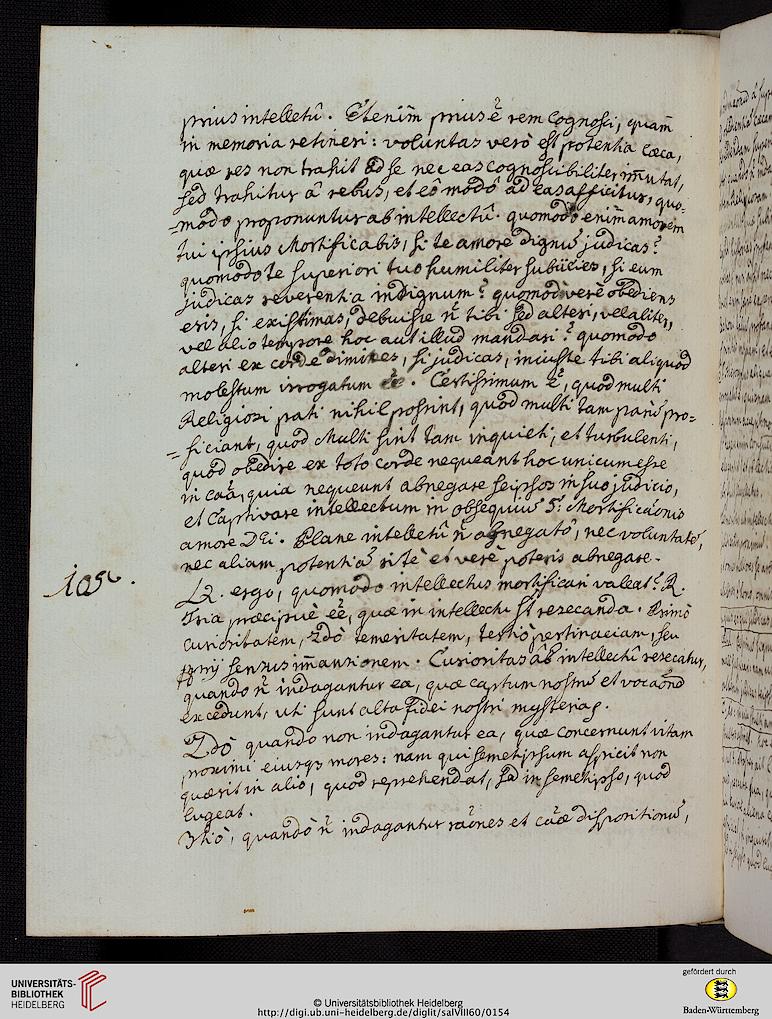 prius intellectû. Etenim̄ prius ē rem Cognosci, quam̄
in memoria retineri: voluntas verò est potentia cæca,
quæ res non trahit ad se nec eas cognoscibiliter im̄utat,
sed trahitur â rebus, et eô modô ad eas afficitur, quo-
-modo proponuntur ab intellectû. quomodo enim̄ amorem
tui ipsius Mortificabis, si te amore dignũ judicas?
quomodo te superiori tuo humiliter subiicies, si eum
judicas reverentia indignum? quomodò verè obediens
eris, si existimas, debuisse n̄ tibi sed alteri, vel aliter,
vel alio tempore hoc aut illud mandari? quomodo
alteri ex corde dimittes, si judicas, iniuste tibi aliquod
molestum irrogatum ēē. Certissimum ē, quod multi
Religiosi pati nihil possint, quod multi tam parũ pro=
=ficiant, quod Multi sint tam inquieti, et turbulenti,
quod obedire ex toto corde nequeant hoc unicum esse
in caâ, quia nequeunt abnegare seipsos in suo judicio,
et Captivare intellectum in obsequiũ S: Mortificãonis
amore Dei. Plane intellectû n̄ abnegatô, nec voluntatẽ,
nec aliam potentiã ritè et verè poteris abnegare.
105.
Q. ergo, quomodo intellectus mortificari valeat? R.
Tria præcipuè ēē, quæ in intellectu st̄ resecanda. Primò
curiositatem, 2dò temeritatem, tertiò pertinaciam, seu
pprij sensus im̄ansionem. Curiositas ab intellectû resecatur,
quando n̄ indagantur ea, quæ captum nostrũ et vocaõnẽ
excedunt, uti sunt alta fidei nostri mysteria.
2dò quando non indagantur ea, quæ concernunt vitam
proximi eiusqȝ mores: nam qui semetipsum aspicit non
quærit in alio, quod reprehendat, sed in semetipso, quod
lugeat.
3tiò, quandò n̄ indagantur raõnes et caæ dispositionũ,
UNIVERSITÄTS-
BIBLIOTHEK
HEIDELBERG
© Universitätsbibliothek Heidelberg
http://digi.ub.uni-heidelberg.de/diglit/salVIII60/0154
gefördert durch
Baden-Württemberg